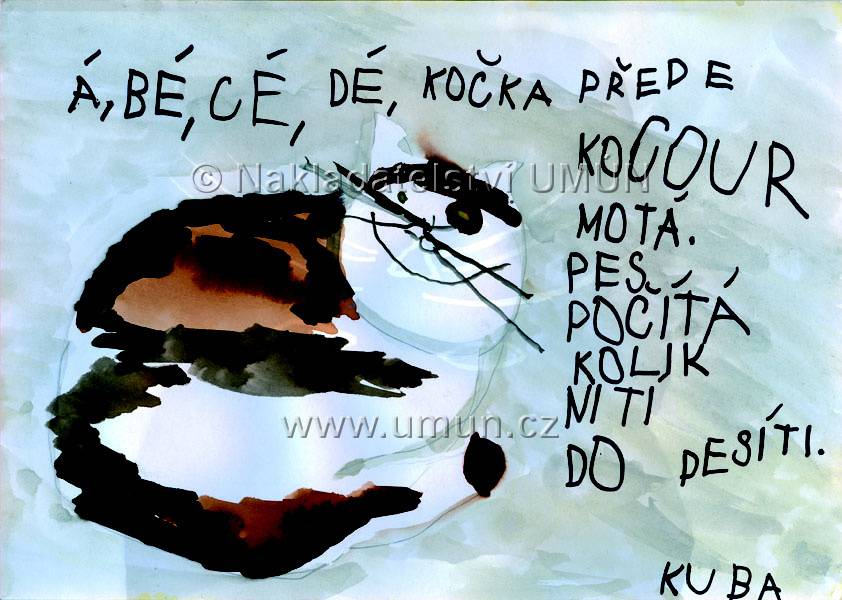 Á, BÉ, CÉ, DÉ, KOČKA PŘEDE
KOCOUR
© Nakladatelství UMÚN
MOTÁ.
PES
POČÍTÁ
KOLIK
NITÍ
www.umun.cz
DO DESÍTI.
KUBA